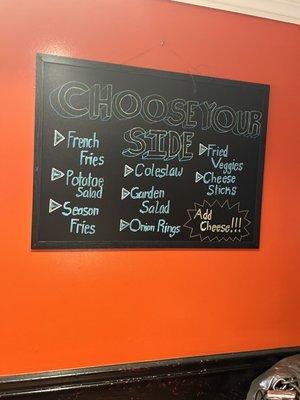 CHOOSE YOUR
SIDE
French
Fries
Potatoe
Salad
Season
Fries
Coleslaw
Garden
Salad
Onion Rings
Fried
Veggies
Cheese
Sticks
Add
Cheese!!!